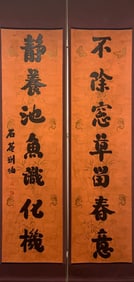 不除窗草留春意
靜養池魚識化機
石菴劉墉